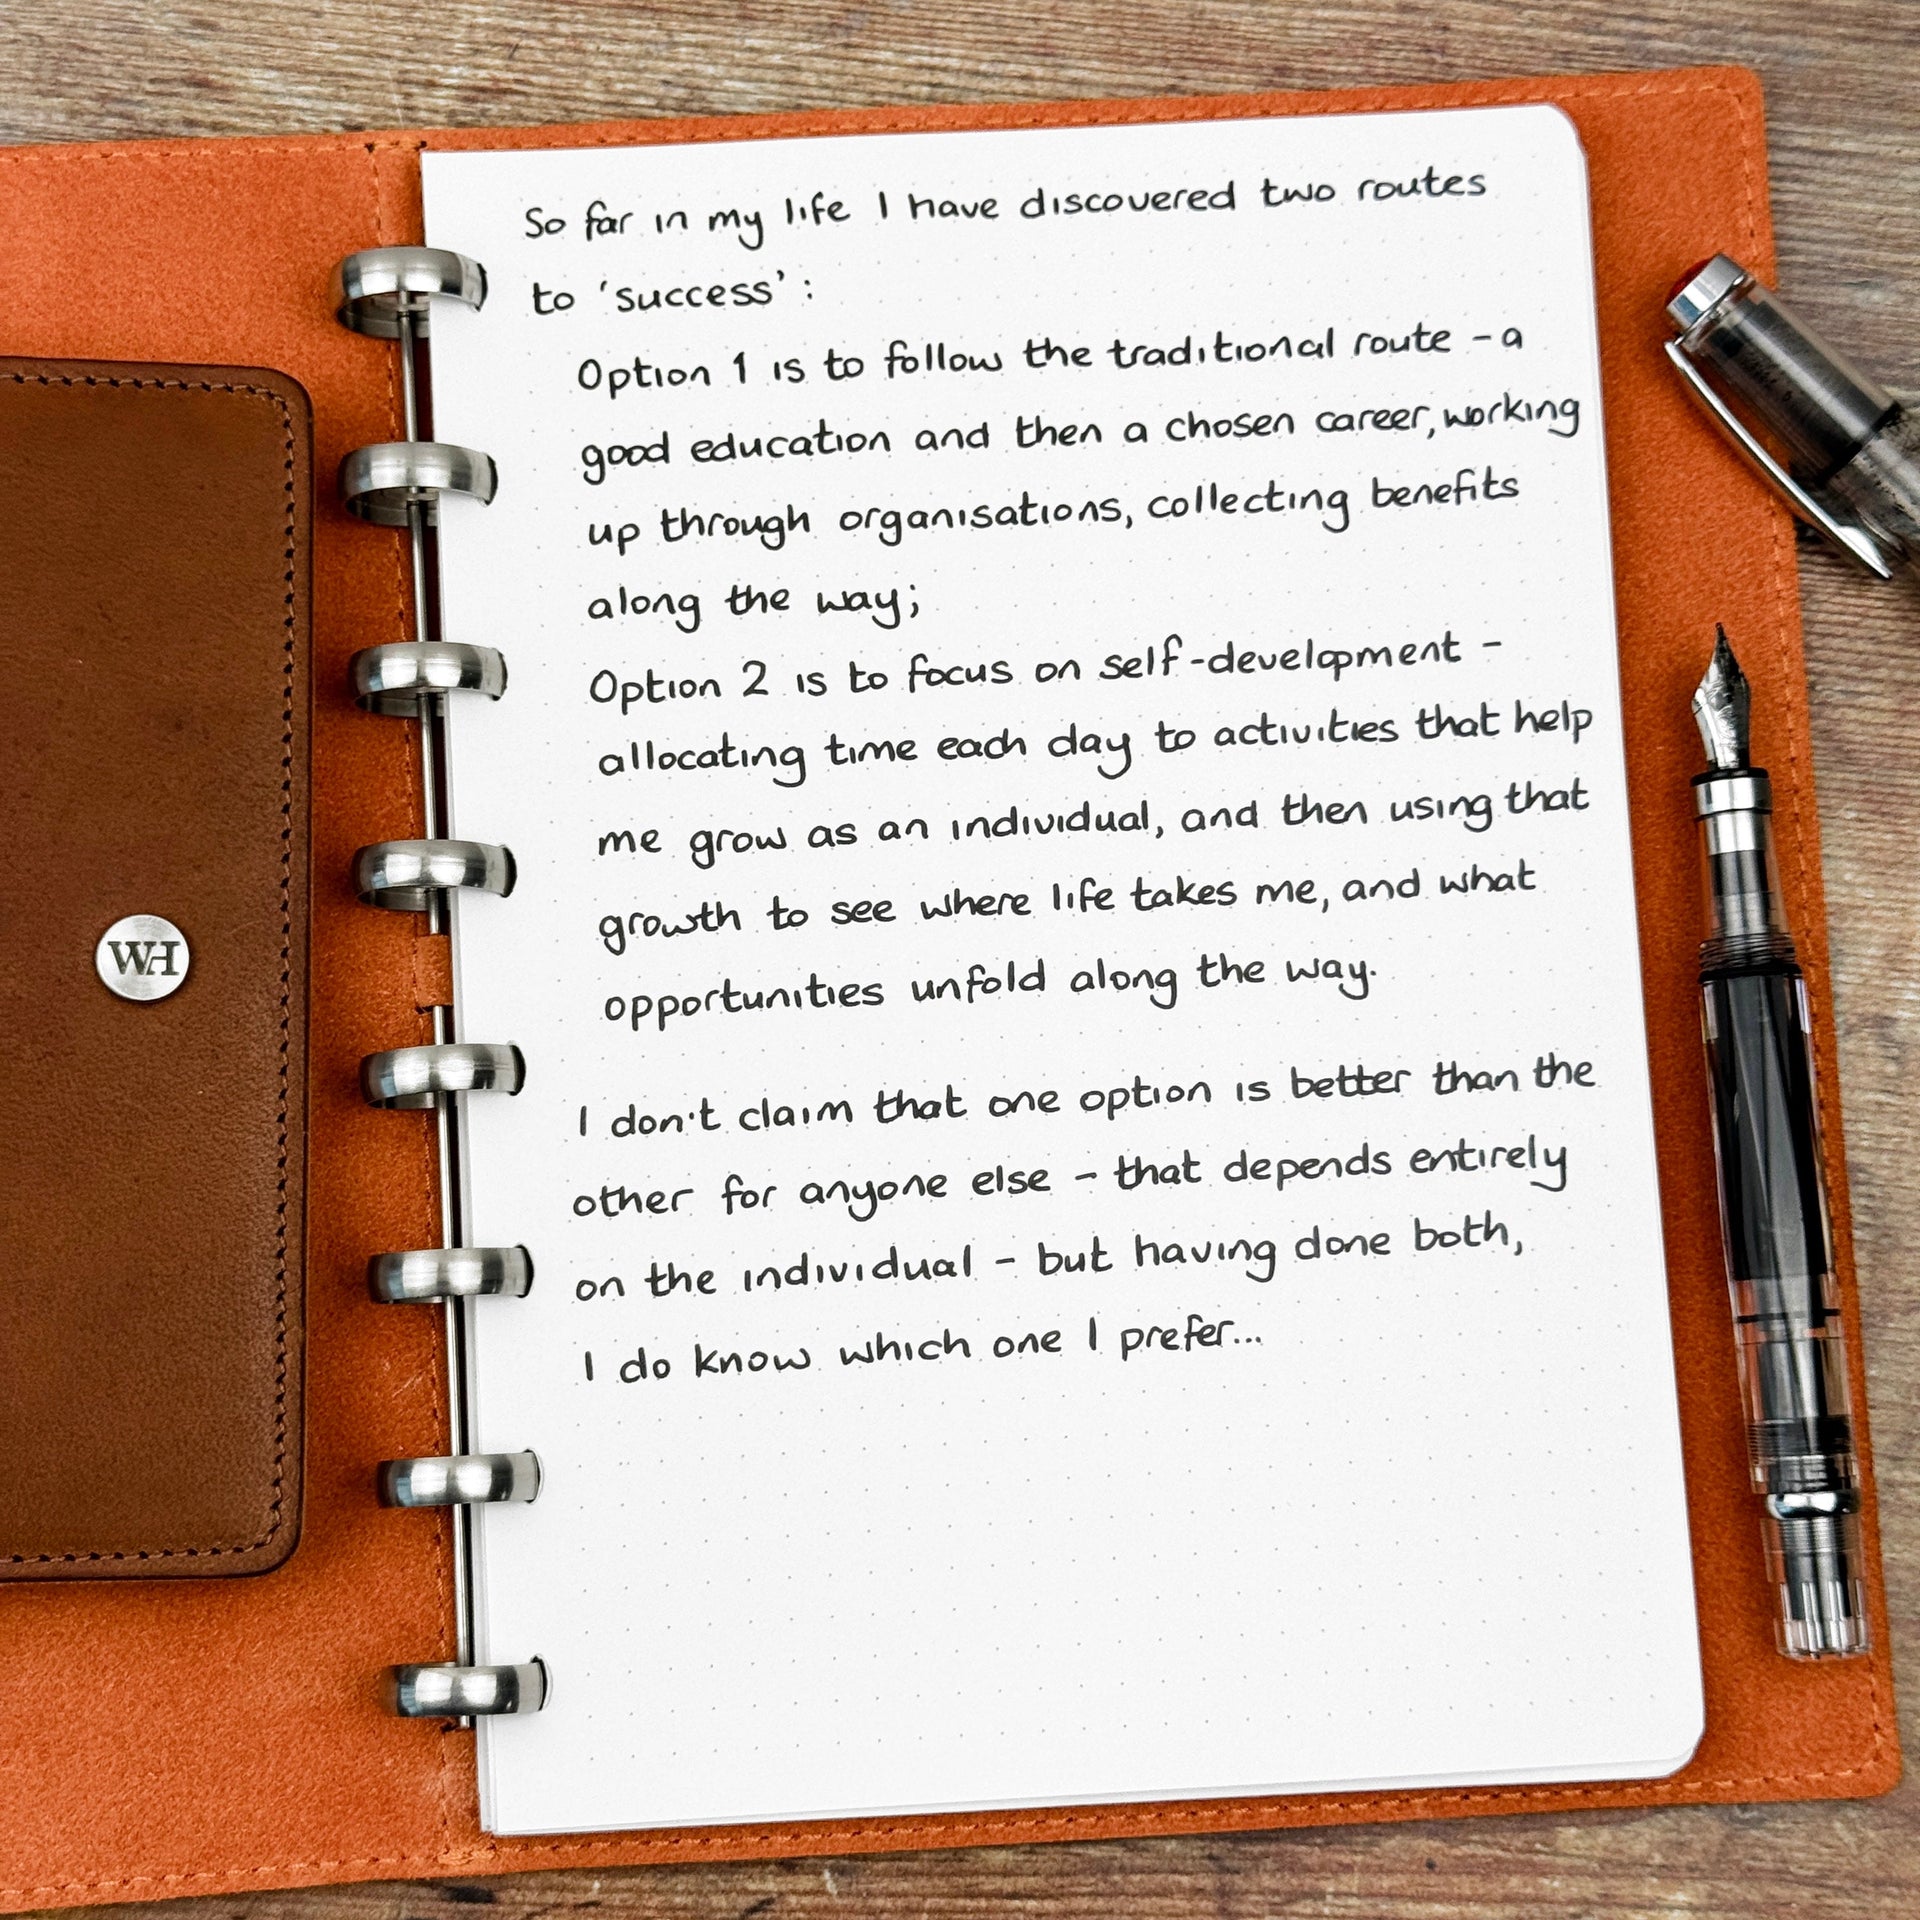 So far in my life I have discovered two routes
to 'success':
Option 1 is to follow the traditional route - a
good education and then a chosen career, working
up through organisations, collecting benefits
along the way;
Option 2 is to focus on self-development -
allocating time each day to activities that help
me grow as an individual, and then using that
growth to see where life takes me, and what
opportunities unfold along the way.
I don't claim that one option is better than the
other for anyone else - that depends entirely
on the individual - but having done both,
I do know which one I prefer...
WH